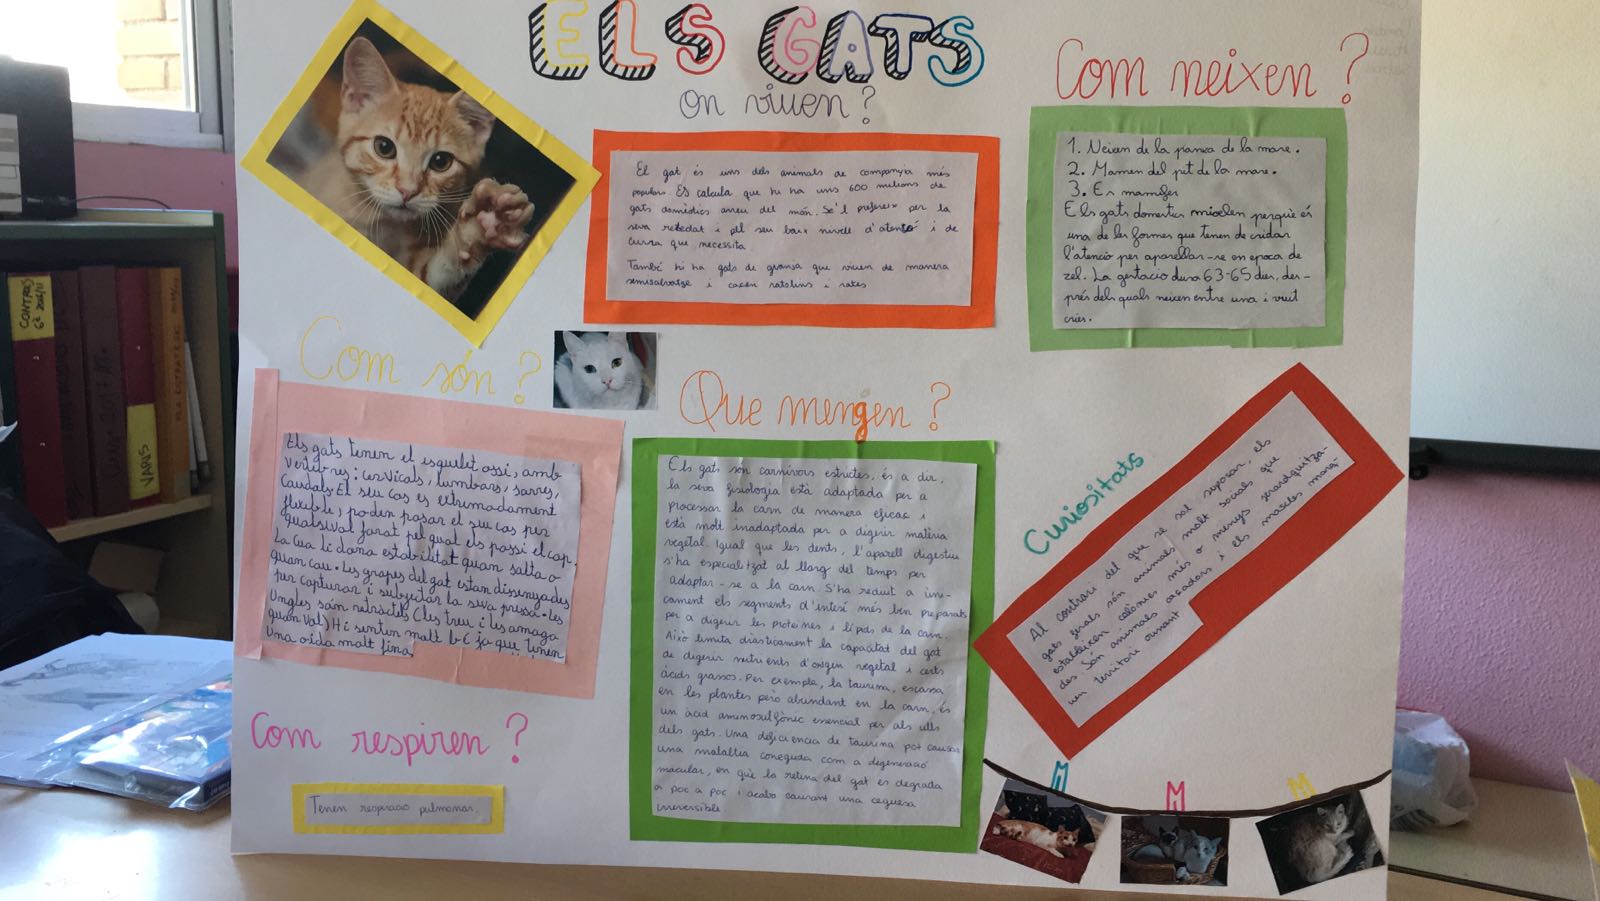 ELS GATS
on viuen?
El gat és uns dels animals de companyia més
populars. Es calcula que hi ha uns 600 milions de
gats domèstics arreu del món. Se'l prefereix per la
seva netedat i pel seu baix nivell d'atenció i de
cura que necessita.
També hi ha gats de granja que viuen de manera
semisalvatge i cacen ratolins i rates
Com neixen?
1. Neixen de la panxa de la mare.
2. Mamen del pit de la mare.
3. Es mamifer
Els gats domestics miolen perquè és
una de les formes que tenen de cridar
l'atencio per aparellar-se en epoca de
zel. La gestacio dura 63-65 dies, des-
prés dels quals neixen entre una i vuit
cries.
Com són?
Els gats tenen el esquelet ossi, amb
Vertebres: cervicals, lumbars, sacres,
Caudals. El seu cos es extremadament
flexible i poden pasar el seu cos per
qualsival forat pel qual els passi el cap.
La cua li dona estabilitat quan salta o
quan cau. Les grapes del gat estan dissenyades
per capturar i subjectar la seva pressa. Les
Ungles són retràctils (les treu i les amaga
quan val) Hi senten molt bé ja que tenen
Una oïda molt fina.
Que mengen?
Els gats són carnívors estrictes, és a dir,
la seva fisiologia està adaptada per a
processar la carn de manera eficaç i
està molt inadaptada per a digerir matèria
vegetal. Igual que les dents, l'aparell digestiu
s'ha especialitzat al llarg del temps per
adaptar-se a la carn. S'ha reduit a úni-
cament els segments d'intestí més ben preparats
per a digerir les proteïnes i lípids de la carn.
Això limita dràsticament la capacitat del gat
de digerir nutrients d'origen vegetal i certs
àcids grassos. Per exemple, la taurina, escassa
en les plantes però abundant en la carn, és
un àcid aminosulfònic essencial per als ulls
dels gats. Una deficiencia de taurina pot causar
una malaltia coneguda com a degeneració
macular, en què la retina del gat es degrada
a poc a poc i acaba causant una ceguesa
irreversible
Curiositats
Al contrari del que se sol suposar, els
gats ferals són animals molt socials que
estableixen colònies més o menys jerarquitza-
des. Són animals caçadors i els mascles marq-
uen territori orinant
Com respiren?
Tenen respiració pulmonar.
CONTROLS
6è
VARIS